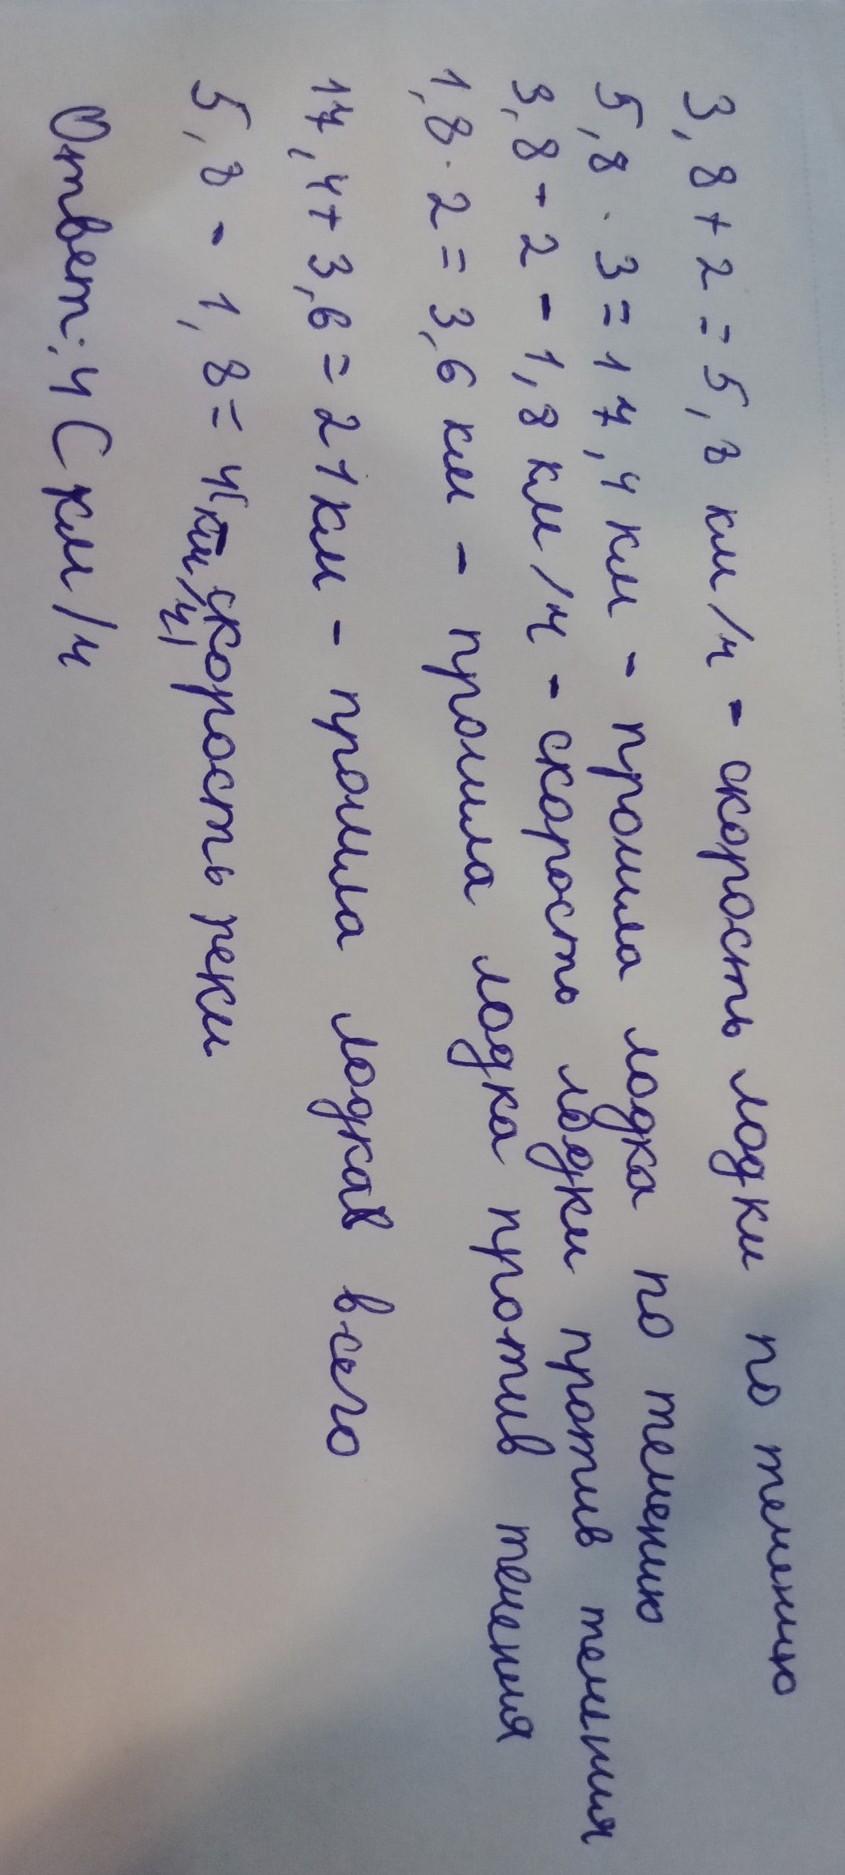 3,8 + 2 = 5,8 км/ч - скорость лодки по течению
5,8 · 3 = 17,4 км - прошла лодка по течению
3,8 - 2 = 1,8 км/ч - скорость лодки против течения
1,8 · 2 = 3,6 км - прошла лодка против течения
17,4 + 3,6 = 21 км - прошла лодка всего
5,8 - 1,8 = 4 (км/ч) скорость реки
Ответ: 4 (км/ч